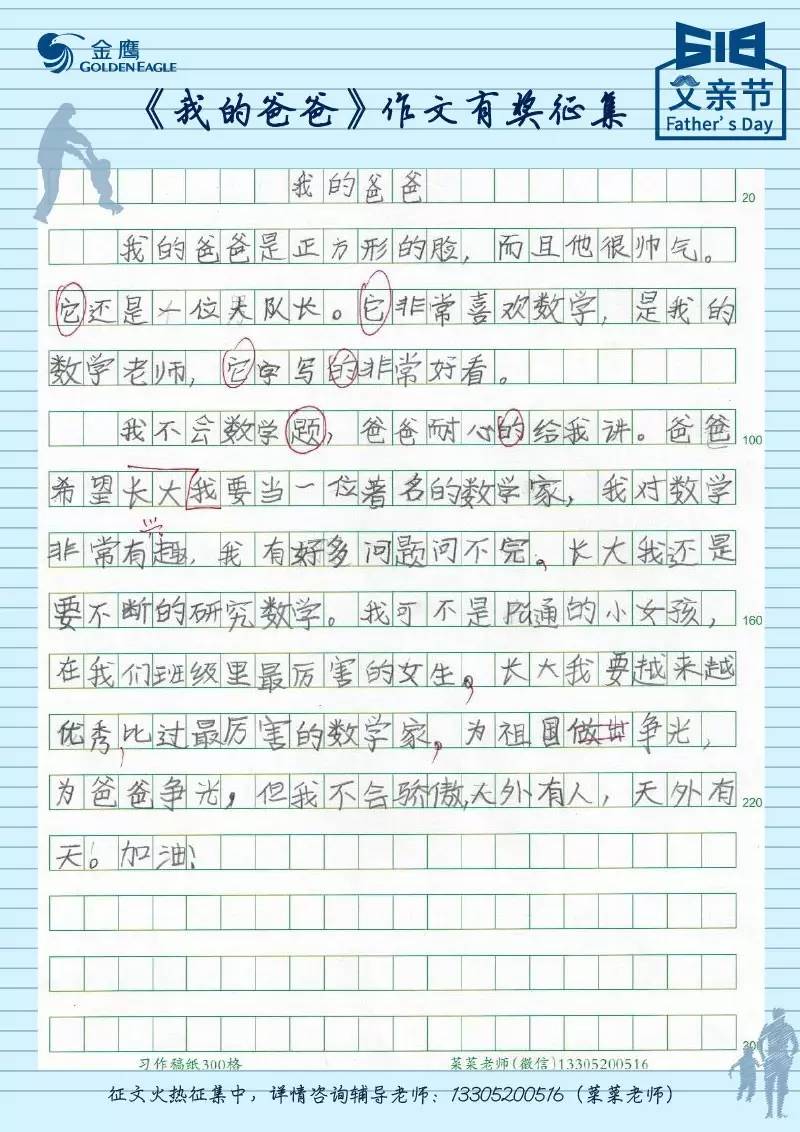 金鹰
GOLDEN EAGLE
618
父亲节
Father's Day
《我的爸爸》作文有奖征集
我的爸爸
20
我的爸爸是正方形的脸，而且他很帅气。
它还是一位大队长。它非常喜欢数学，是我的
数学老师，它字写的非常好看。
我不会数学题，爸爸耐心的给我讲。爸爸
100
希望长大我要当一位著名的数学家，我对数学
兴
非常有趣，我有好多问题问不完，长大我还是
要不断的研究数学。我可不是通的小女孩，
160
在我们班级里最厉害的女生，长大我要越来越
优秀，比过最厉害的数学家，为祖国做争光，
为爸爸争光，但我不会骄傲，人外有人，天外有
220
天。加油！
300
习作稿纸300格
菜菜老师(微信)13305200516
征文火热征集中，详情咨询辅导老师：13305200516（菜菜老师）